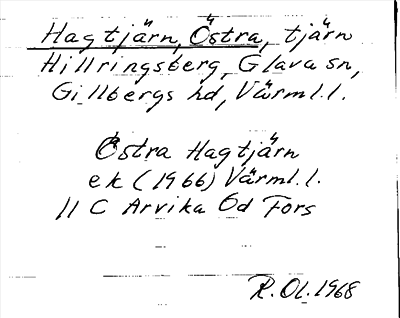 Hagtjärn, Östra, tjärn
Hillringsberg, Glava sn,
Gillbergs hd, Värml.l.
Östra Hagtjärn
ek (1966) Värml.l.
11 C Arvika Öd Fors
R.Ol.1968